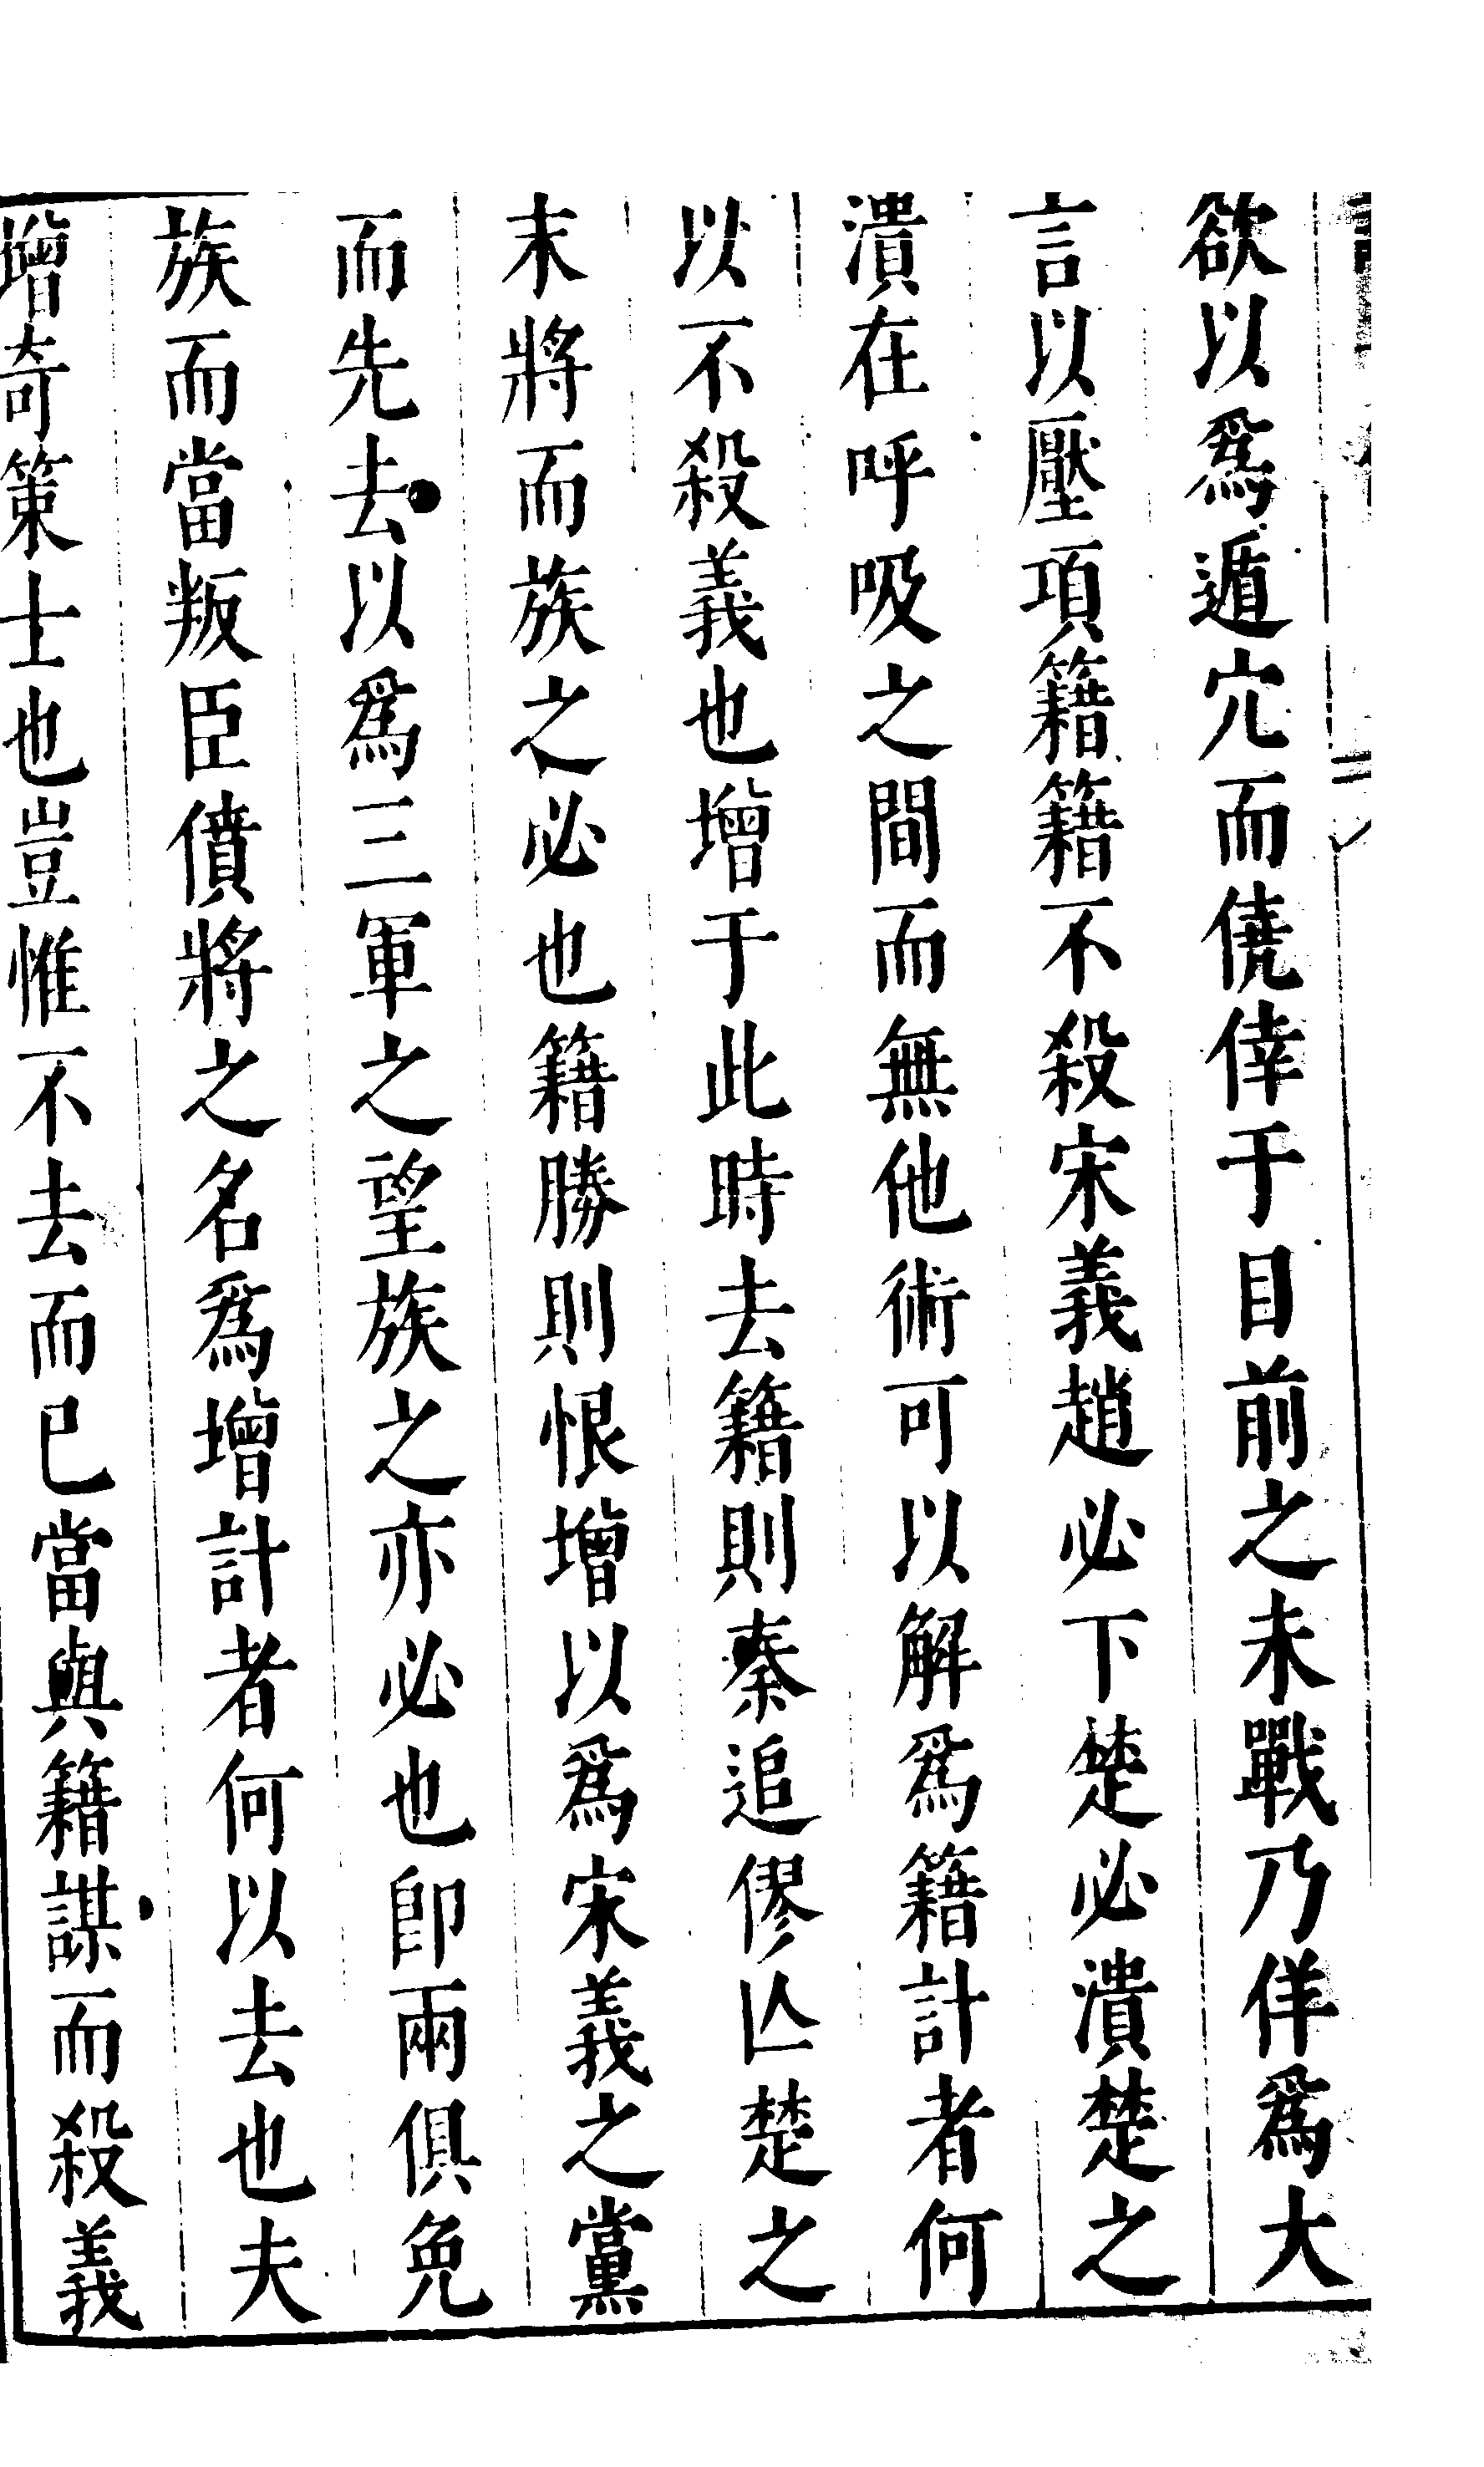 欲以爲遁穴而僥倖于目前之未戰乃佯爲大
言以壓項籍籍不殺宋義趙必下楚必潰楚之
潰在呼吸之間而無他術可以解爲籍計者何
以不殺義也增于此時去籍則秦追僇亾楚之
末將而族之必也籍勝則恨增以爲宋義之黨
而先去以爲三軍之望族之亦必也卽兩俱免
族而當叛臣僨將之名爲增計者何以去也夫
增奇策士也豈惟不去而已當與籍謀而殺義